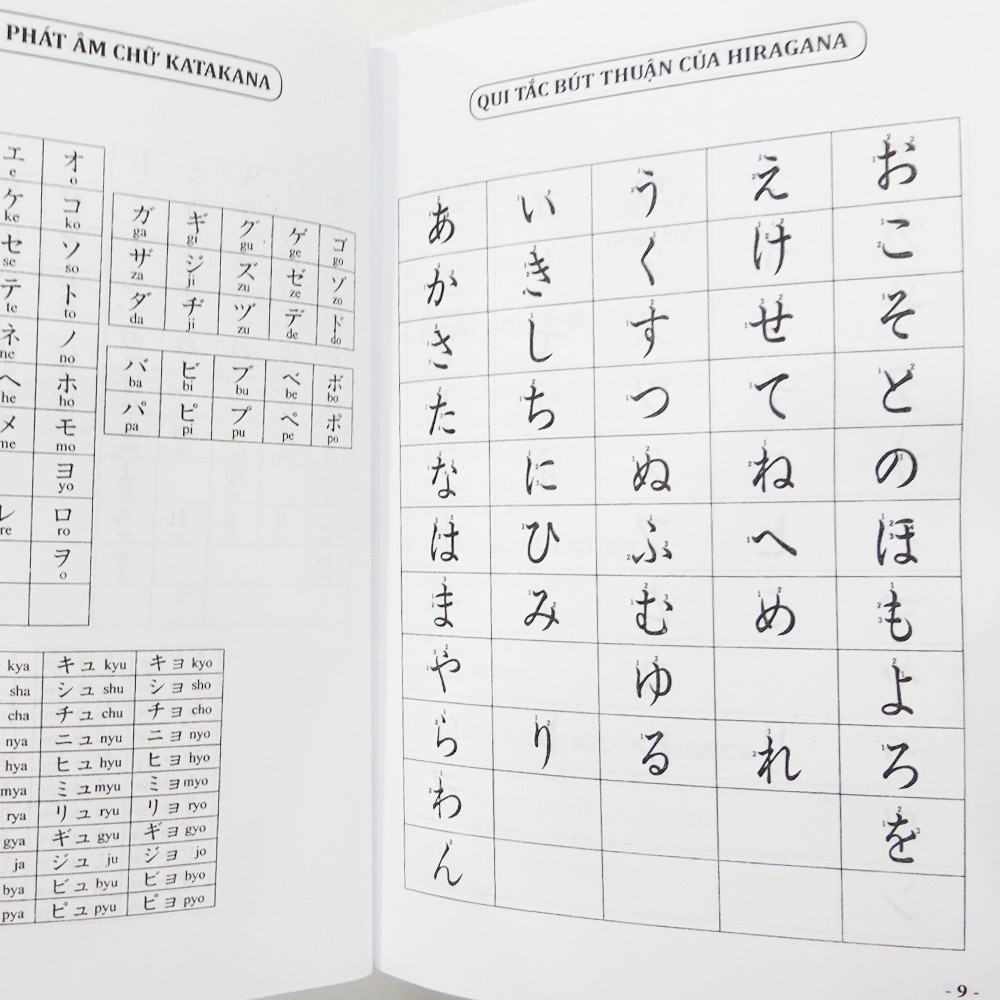 PHÁT ÂM CHỮ KATAKANA
エ オ
e o
ケ コ
ke ko
セ ソ
se so
テ ト
te to
ネ ノ
ne no
ヘ ホ
he ho
メ モ
me mo
ヨ
yo
レ ロ
re ro
ヲ
o
ガ ギ グ ゲ ゴ
ga gi gu ge go
ザ ジ ズ ゼ ゾ
za ji zu ze zo
ダ ヂ ヅ デ ド
da ji zu de do
バ ビ ブ ベ ボ
ba bi bu be bo
パ ピ プ ペ ポ
pa pi pu pe po
kya キュ kyu キョ kyo
sha シュ shu ショ sho
cha チュ chu チョ cho
nya ニュ nyu ニョ nyo
hya ヒュ hyu ヒョ hyo
mya ミュ myu ミョ myo
rya リュ ryu リョ ryo
gya ギュ gyu ギョ gyo
ja ジュ ju ジョ jo
bya ビュ byu ビョ byo
pya ピュ pyu ピョ pyo
QUI TẮC BÚT THUẬN CỦA HIRAGANA
あ い う え お
か き く け こ
さ し す せ そ
た ち つ て と
な に ぬ ね の
は ひ ふ へ ほ
ま み む め も
や ゆ よ
ら り る れ ろ
わ を
ん
- 9 -